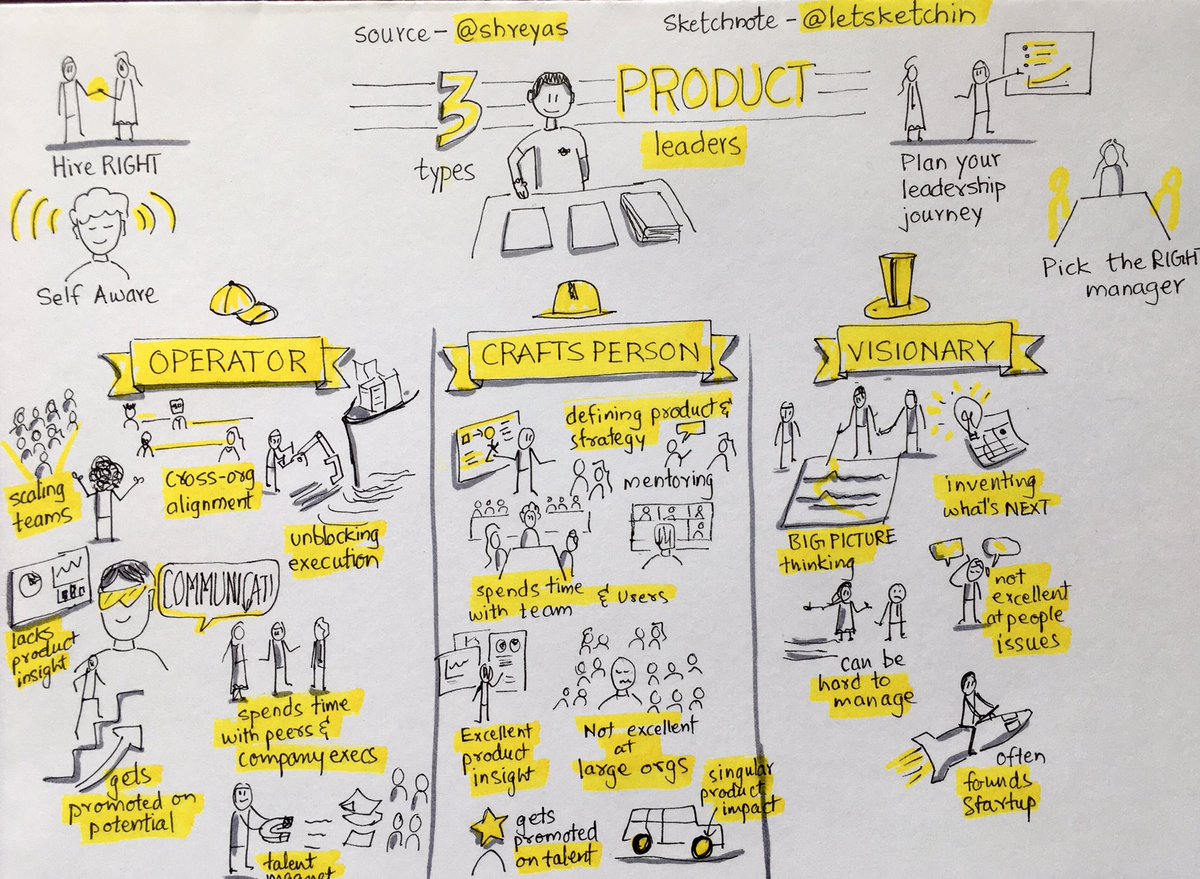 source - @shreyas
Sketchnote - @letsketchin
3
types
PRODUCT
leaders
Hire RIGHT
Self Aware
Plan your
leadership
journey
Pick the RIGHT
manager
OPERATOR
scaling
teams
cross-org
alignment
unblocking
execution
lacks
product
insight
COMMUNICATI
spends time
with peers &
company execs
gets
promoted on
potential
talent
magnet
CRAFTS PERSON
defining product &
strategy
mentoring
spends time
with team & users
Excellent
product
insight
Not excellent
at
large orgs
gets
promoted
on talent
singular
product
impact
VISIONARY
BIG PICTURE
thinking
inventing
what's NEXT
not
excellent
at people
issues
can be
hard to
manage
often
founds
startup